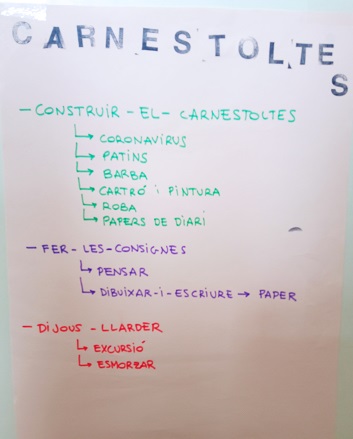 CARNESTOLTE
S
- CONSTRUIR - EL - CARNESTOLTES
↳ CORONAVIRUS
↳ PATINS
↳ BARBA
↳ CARTRÓ i PINTURA
↳ ROBA
↳ PAPERS DE DIARI
- FER - LES - CONSIGNES
↳ PENSAR
↳ DIBUIXAR - i - ESCRIURE → PAPER
- DIJOUS - LLARDER
↳ EXCURSIÓ
↳ ESMORZAR